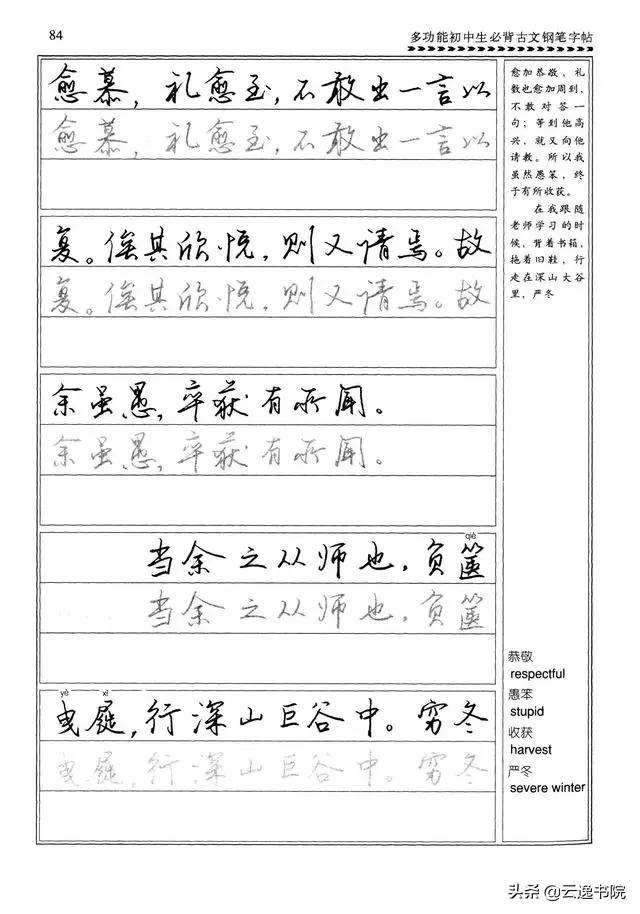 84
多功能初中生必背古文钢笔字帖
愈慕，礼愈至，不敢出一言以
愈慕，礼愈至，不敢出一言以
复。俟其欣悦，则又请焉。故
复。俟其欣悦，则又请焉。故
余虽愚，卒获有所闻。
余虽愚，卒获有所闻。
qiè
当余之从师也，负箧
当余之从师也，负箧
yè xǐ
曳屣，行深山巨谷中。穷冬
曳屣，行深山巨谷中。穷冬
愈加恭敬，礼
数也愈加周到，
不敢对答一
句；等到他高
兴，就又向他
请教。所以我
虽然愚笨，终
于有所收获。
在我跟随
老师学习的时
候，背着书箱，
拖着旧鞋，行
走在深山大谷
里，严冬
恭敬
respectful
愚笨
stupid
收获
harvest
严冬
severe winter
头条 @云逸书院